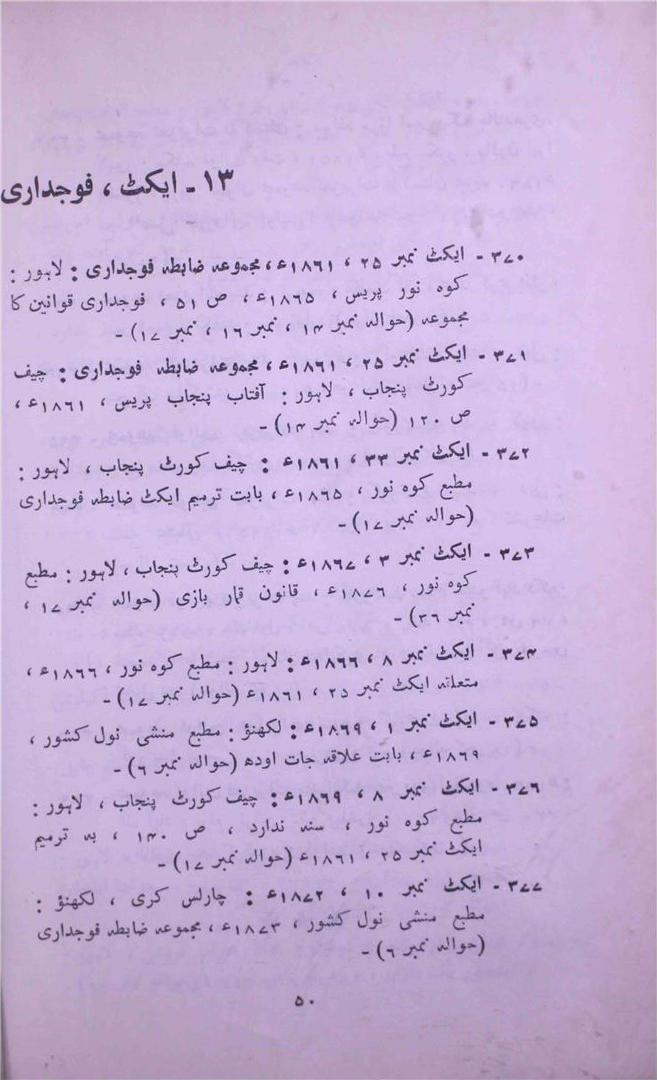 ۱۳ - ایکٹ ، فوجداری
۳۷۰ - ایکٹ نمبر ۲۵ ، ۱۸۶۱ء ، مجموعہ ضابطہ فوجداری : لاہور :
کوہ نور پریس ، ۱۸۶۵ء ، ص ۵۱ ، فوجداری قوانین کا
مجموعہ (حوالہ نمبر ۱۴ ، نمبر ۱۶ ، نمبر ۱۷) -
۳۷۱ - ایکٹ نمبر ۲۵ ، ۱۸۶۱ء ، مجموعہ ضابطہ فوجداری : چیف
کورٹ پنجاب ، لاہور : آفتاب پنجاب پریس ، ۱۸۶۱ء ،
ص ۱۲۰ (حوالہ نمبر ۱۴) -
۳۷۲ - ایکٹ نمبر ۳۳ ، ۱۸۶۱ء : چیف کورٹ پنجاب ، لاہور :
مطبع کوہ نور ، ۱۸۶۵ء ، بابت ترمیم ایکٹ ضابطہ فوجداری
(حوالہ نمبر ۱۷) -
۳۷۳ - ایکٹ نمبر ۳ ، ۱۸۶۷ء : چیف کورٹ پنجاب ، لاہور : مطبع
کوہ نور ، ۱۸۷۶ء ، قانون قمار بازی (حوالہ نمبر ۱۷ ،
نمبر ۳۶) -
۳۷۴ - ایکٹ نمبر ۸ ، ۱۸۶۶ء : لاہور : مطبع کوہ نور ، ۱۸۶۶ء ،
متعلقہ ایکٹ نمبر ۲۵ ، ۱۸۶۱ء (حوالہ نمبر ۱۷) -
۳۷۵ - ایکٹ نمبر ۱ ، ۱۸۶۹ء : لکھنؤ : مطبع منشی نول کشور ،
۱۸۶۹ء ، بابت علاقہ جات اودھ (حوالہ نمبر ۶) -
۳۷۶ - ایکٹ نمبر ۸ ، ۱۸۶۹ء : چیف کورٹ پنجاب ، لاہور :
مطبع کوہ نور ، سنہ ندارد ، ص ۱۴۰ ، بہ ترمیم
ایکٹ نمبر ۲۵ ، ۱۸۶۱ء (حوالہ نمبر ۱۷) -
۳۷۷ - ایکٹ نمبر ۱۰ ، ۱۸۷۲ء : چارلس کری ، لکھنؤ :
مطبع منشی نول کشور ، ۱۸۷۳ء ، مجموعہ ضابطہ فوجداری
(حوالہ نمبر ۶) -
۵۰